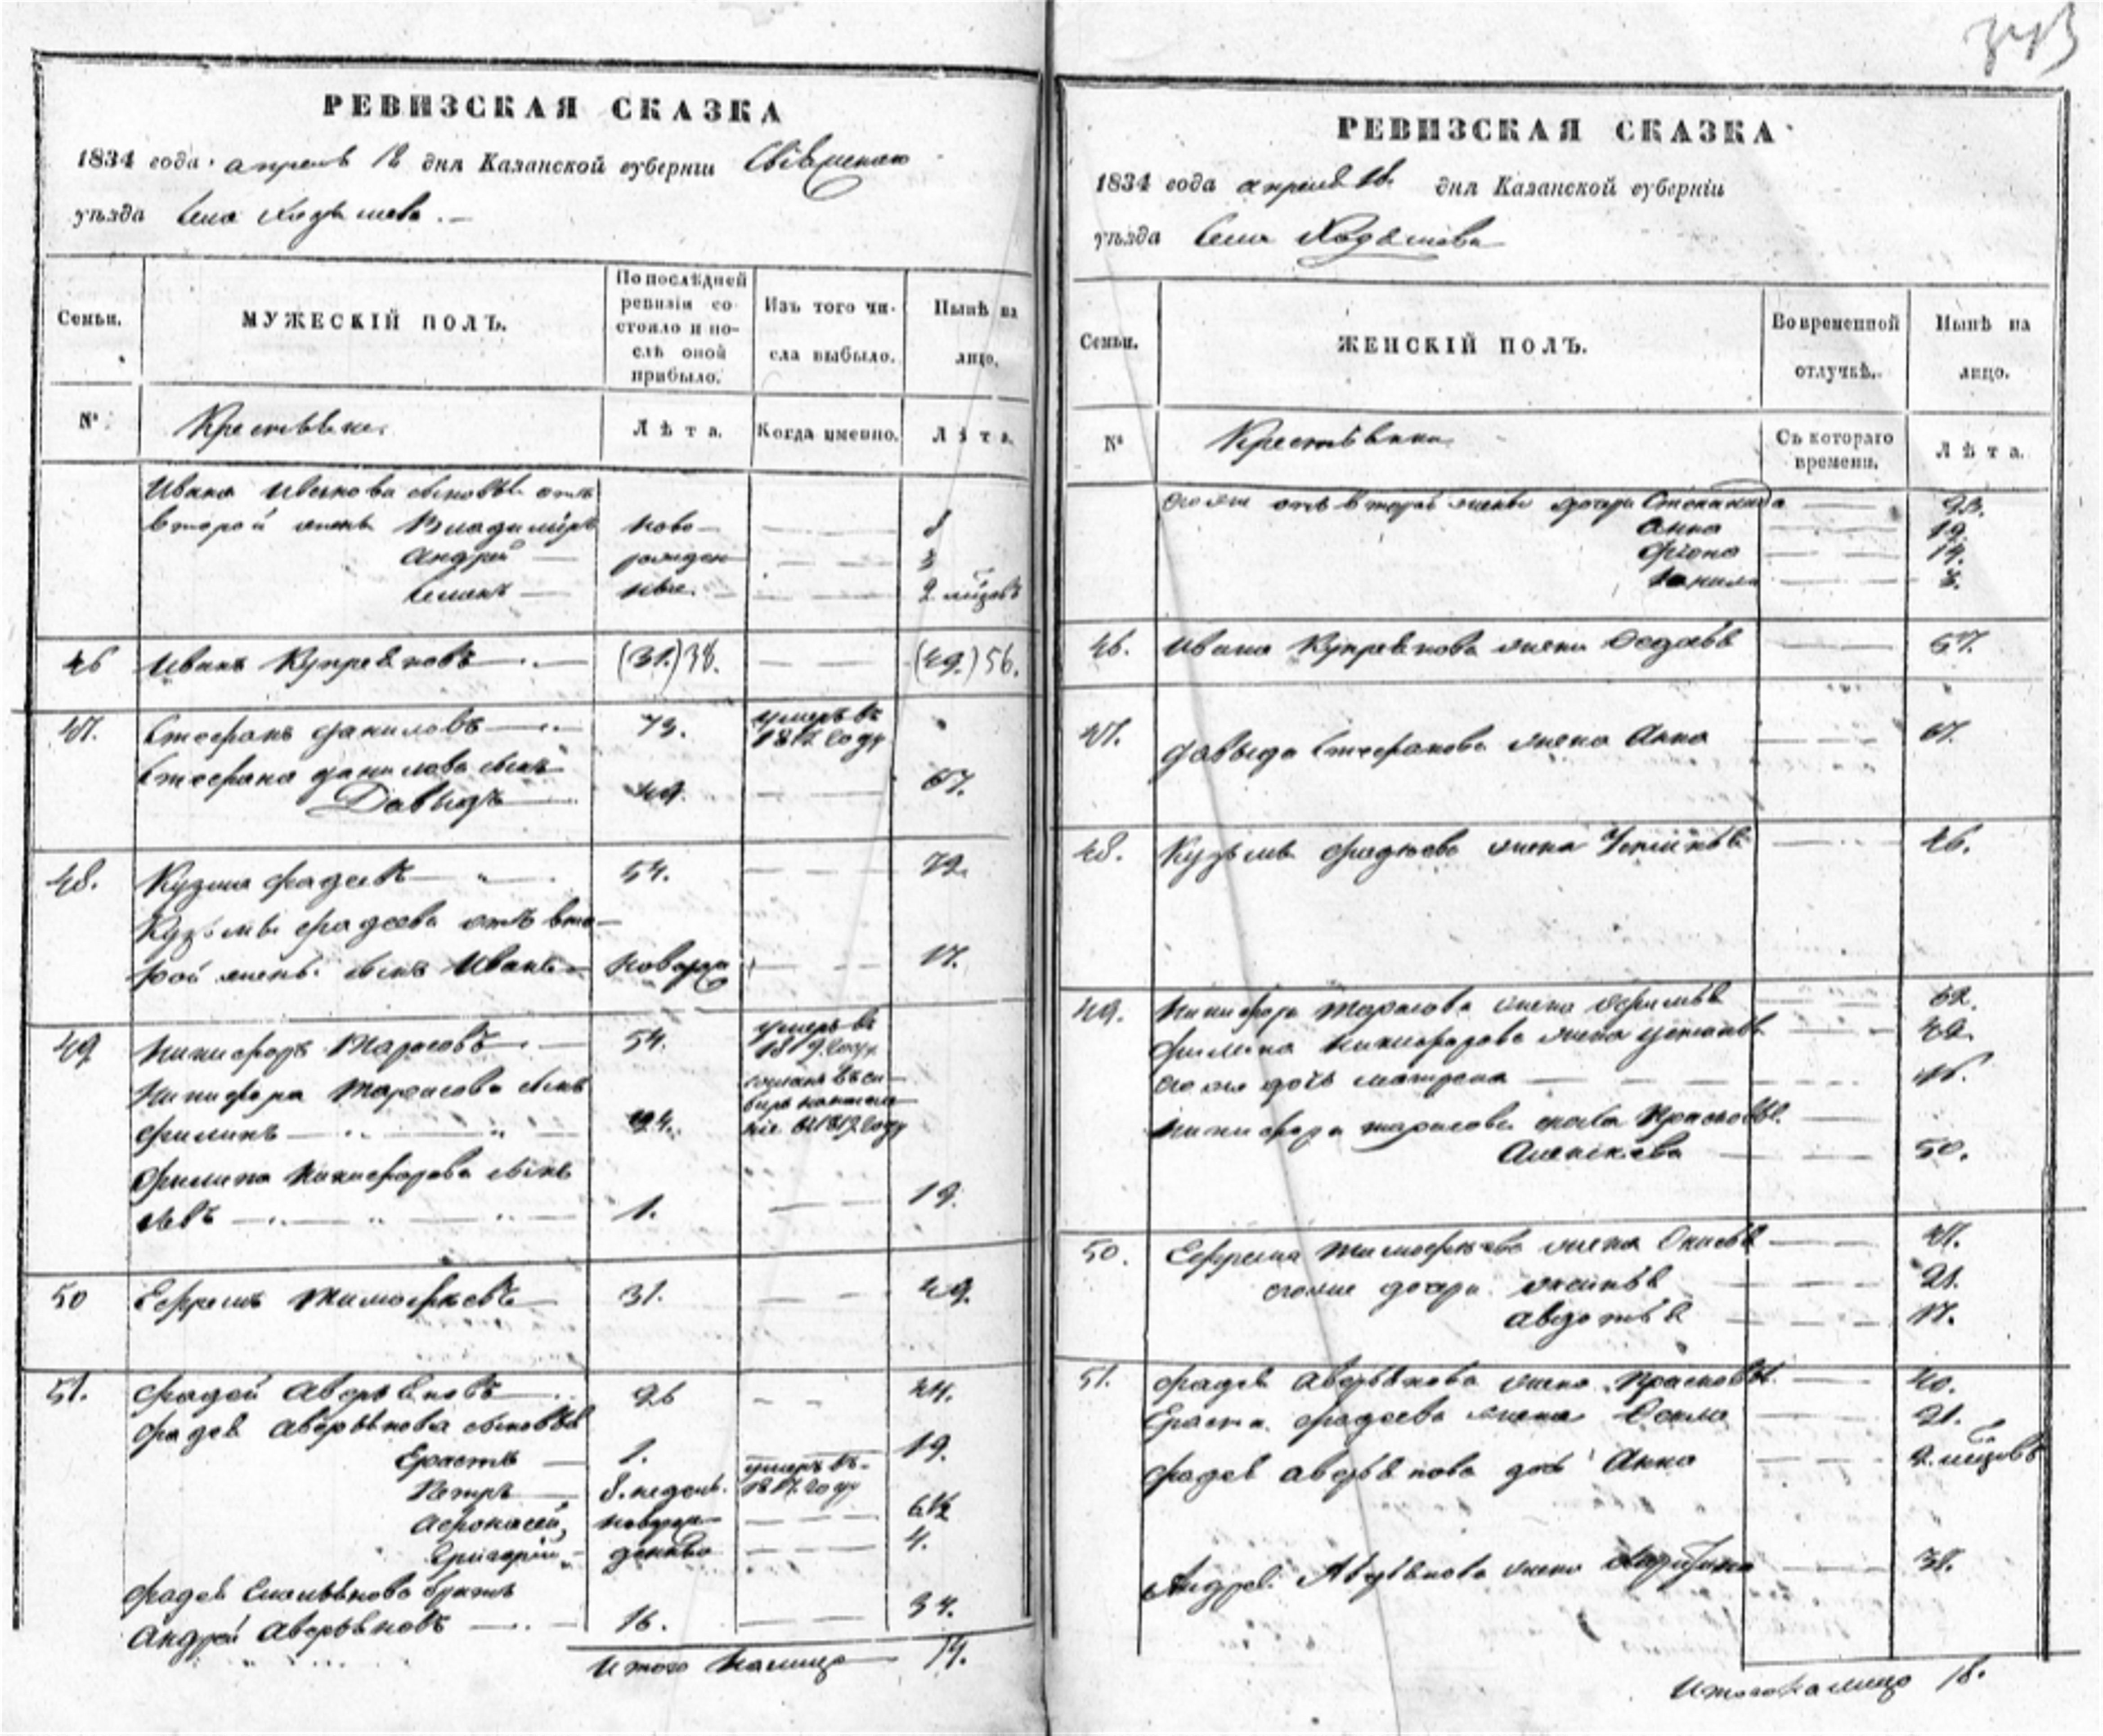 РЕВИЗСКАЯ СКАЗКА
1834 года апреля 18 дня Казанской губерніи
уѣзда Села
Семьи.
МУЖЕСКІЙ ПОЛЪ.
По послѣдней ревизіи состояло и послѣ оной прибыло.
Изъ того числа выбыло.
Нынѣ на лицо.
№
Крестьяне.
Лѣта.
Когда именно.
Лѣта.
Ивана Иванова сыновья отъ
второй жены Владимиръ ново- 8
Андрей рожден 3
Семенъ ные. 2 мѣсяцовъ
46 Иванъ Купреяновъ (31.) 38. (49.) 56.
47. Стефанъ Даниловъ 73. умеръ въ 1817 году
Стефана Данилова сынъ
Давыдъ 49. 67.
48. Кузма Фадеевъ 54. 72.
Кузьмы Фадеева отъ вто-
рой жены сынъ Иванъ новорож 17.
49 Никифоръ Тарасовъ 54. умеръ въ 1819 году
Никифора Тарасова сынъ
Филипъ 24. сосланъ въ си-
биръ на поселе-
ніе въ году
Филипа Никифорова сынъ
Левъ 1. 19.
50 Ефремъ Тимофѣевъ 31. 49.
51. Фадей Аверьяновъ 26 44.
Фадея Аверьянова сыновья
Ерастъ 1. 19.
Петръ 8. недель. умеръ въ 1817 году
Афонасей, новорож- 6½
Григорій денные 4.
Фадея братъ
Андрей Аверьяновъ 16. 34.
Итого налицо 14.
РЕВИЗСКАЯ СКАЗКА
1834 года апреля 18. дня Казанской губерніи
уѣзда Села
Семьи.
ЖЕНСКІЙ ПОЛЪ.
Во временной отлучкѣ.
Нынѣ на лицо.
№
Крестьянки
Съ котораго времени.
Лѣта.
Его же отъ второй жены дочери Степанида 23.
Анна 19.
Фіона 14.
46. Ивана Купреянова жена Федосья 57.
47. Давыда Стефанова жена Анна 67.
48. Кузьмы Фадѣева жена Устинья 46.
49. Никифора Тарасова жена Ефимья 62.
Филипа Никифорова жена Устинья 42.
Его же дочь Матрена 16.
Никифора Тарасова сноха Прасковья
Алексѣева 50.
50. Ефрема Тимофѣева жена 47.
его же дочери Аксинья 21.
Авдотья 17.
51. Фадея Аверьянова жена Прасковья 40.
Ераста Фадеева жена Фекла 21.
Фадея Аверьянова дочь Анна 2. мѣсяцовъ
Андрея Аверьянова жена 31.
Итого на лицо 18.